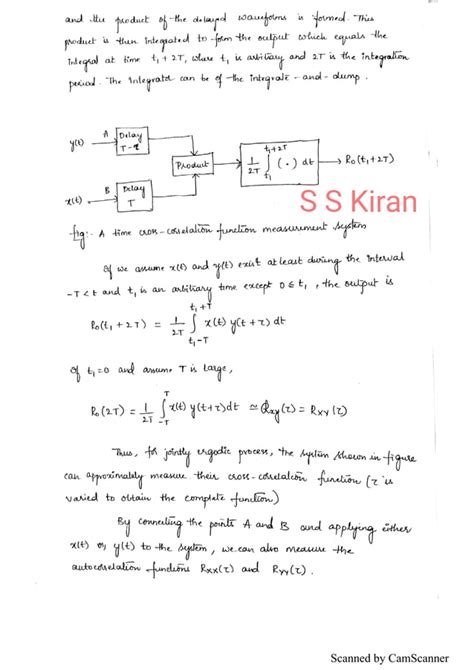 and the product of the delayed waveforms is formed. This
product is then integrated to form the output which equals the
integral at time t₁+2T, where t₁ is arbitrary and 2T is the integration
period. The Integrator can be of the integrate-and-dump.
y(t)
A
Delay
T-τ
Product
1/2T ∫_{t₁}^{t₁+2T} (·) dt
R₀(t₁+2T)
x(t)
B
Delay
T
S S Kiran
fig:- A time cross-correlation function measurement system
If we assume x(t) and y(t) exist at least during the interval
-T<t and t₁ is an arbitrary time except 0≤t₁, the output is
R₀(t₁+2T) = 1/2T ∫_{t₁-T}^{t₁+T} x(t) y(t+τ) dt
If t₁=0 and assume T is large,
R₀(2T) = 1/2T ∫_{-T}^{T} x(t) y(t+τ)dt ≃ ℛxy(τ) = Rxy(τ)
Thus, for jointly ergodic process, the system shown in figure
can approximately measure their cross-correlation function (τ is
varied to obtain the complete function)
By connecting the points A and B and applying either
x(t) or y(t) to the system, we can also measure the
autocorrelation functions Rxx(τ) and Ryy(τ).
Scanned by CamScanner